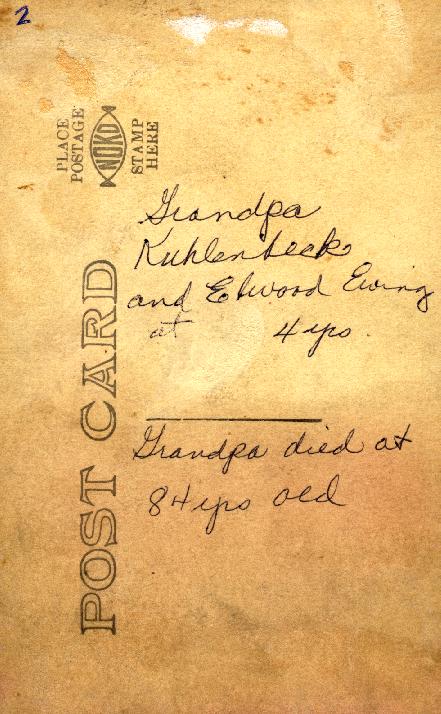 2
PLACE
POSTAGE
NOKO
STAMP
HERE
POST CARD
Grandpa
Kuhlenbeck
and Elwood Ewing
at 4 yrs.
Grandpa died at
84 yrs old